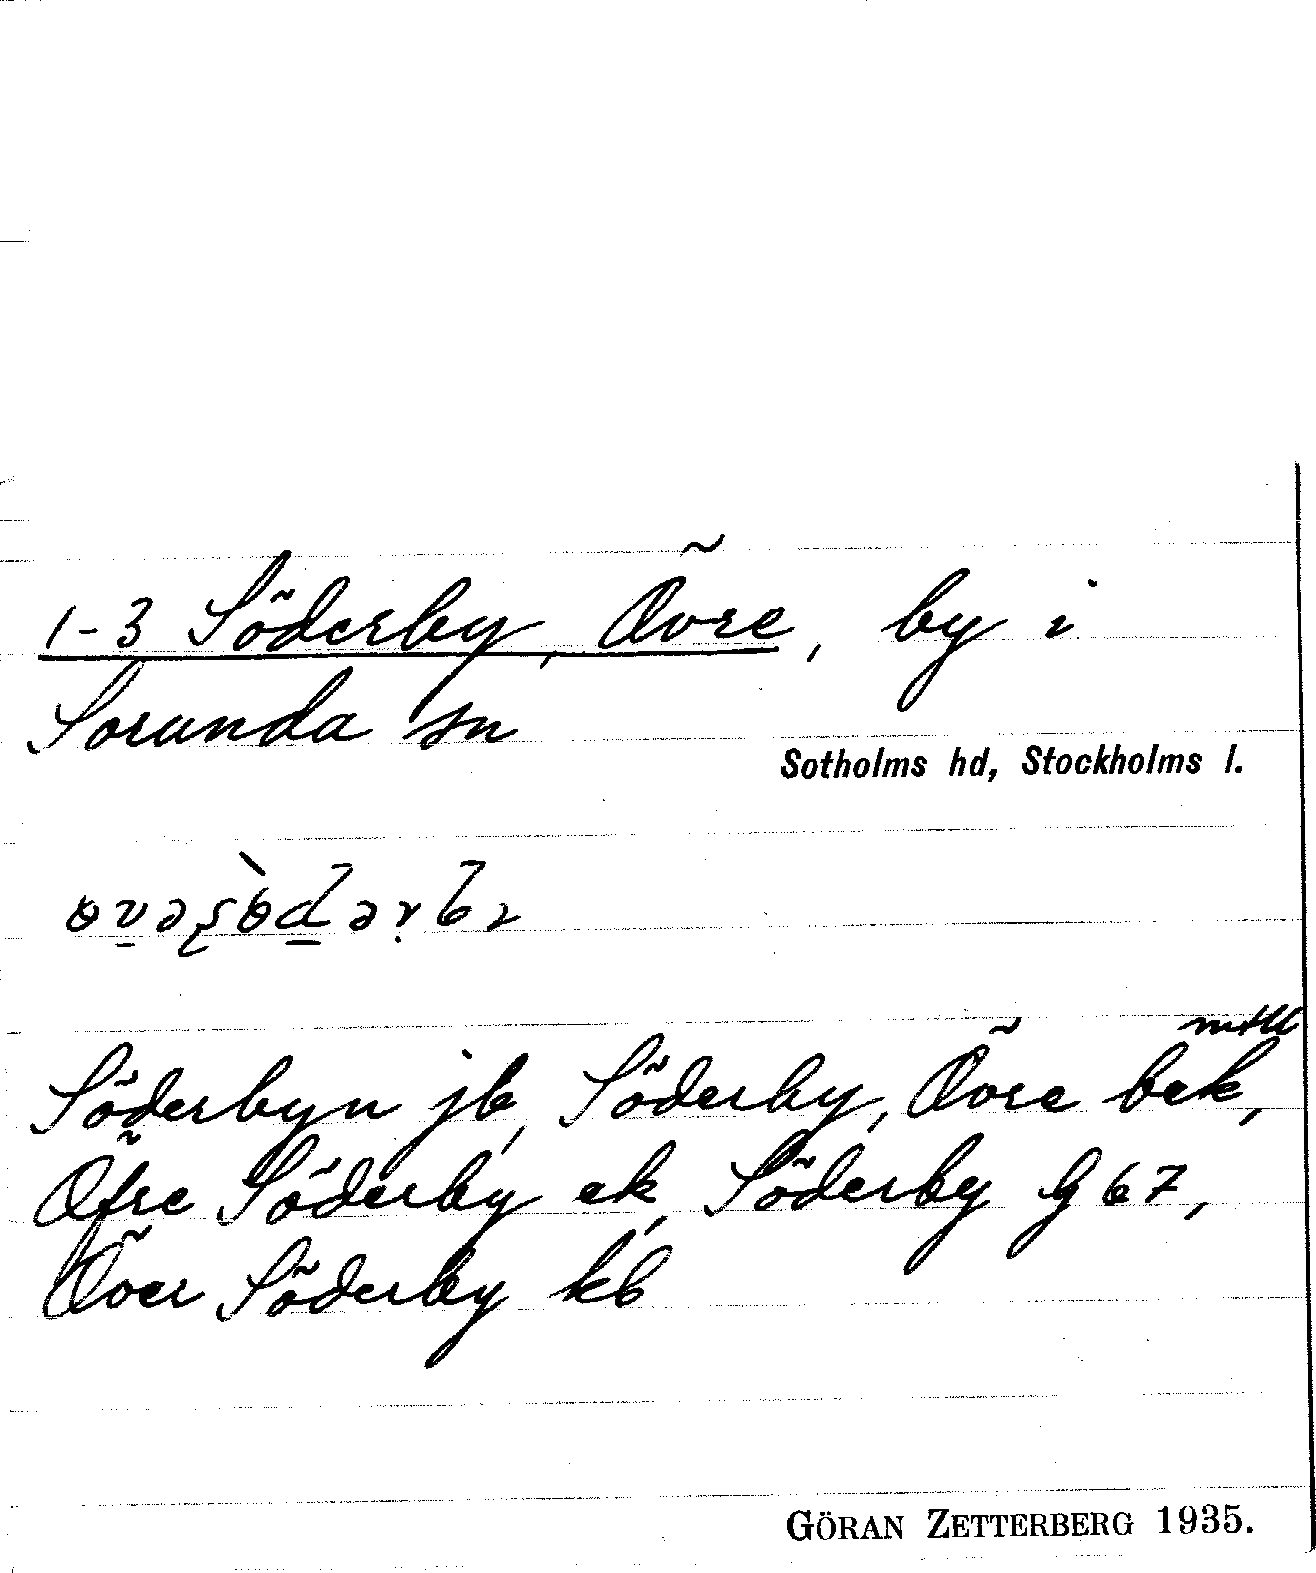 1-3 Söderby, Övre, by i
Sorunda sn
Sotholms hd, Stockholms l.
Söderbyn jb, Söderby, Övre bek,
Öfre Söderby ek, Söderby G 67,
Över Söderby kb
GÖRAN ZETTERBERG 1935.